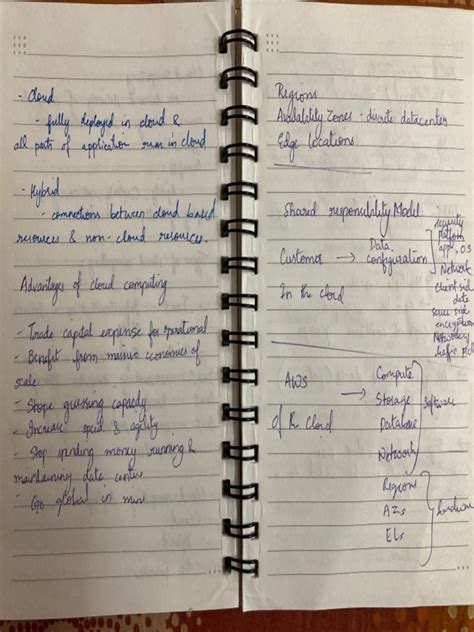 - Cloud
- fully deployed in cloud &
all parts of application run in cloud
- Hybrid
- connections between cloud based
resources & non-cloud resources.
Advantages of cloud computing
- Trade capital expense for operational
- Benefit from massive economies of
scale
- Stope guessing capacity
- Increase speed & agility
- Stop spending money running &
maintaining data centre
- Go global in mins
Regions
Availability Zones - discrete datacenter
Edge locations
Shared responsibility Model
Customer → Data
configuration
security
platform
app, OS
Network
client sid
data
encryption
In the Cloud
AWS → Compute
Storage
Database
Network
Software
Of the Cloud
Regions
AZs
ELs